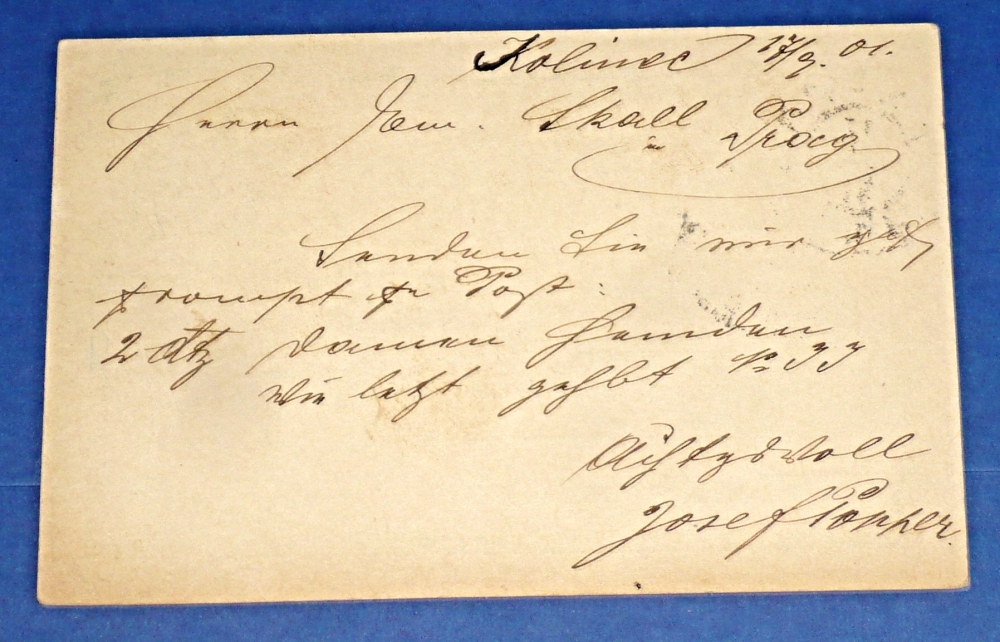 Kolinec 17/9. 01.
Herrn Sam. Skall
in Prag
Senden Sie mir
prompt pr Post:
2 Dtz Damen Hemden
wie letzt gehbt No 33
Achtgsvoll
Josef Popper.